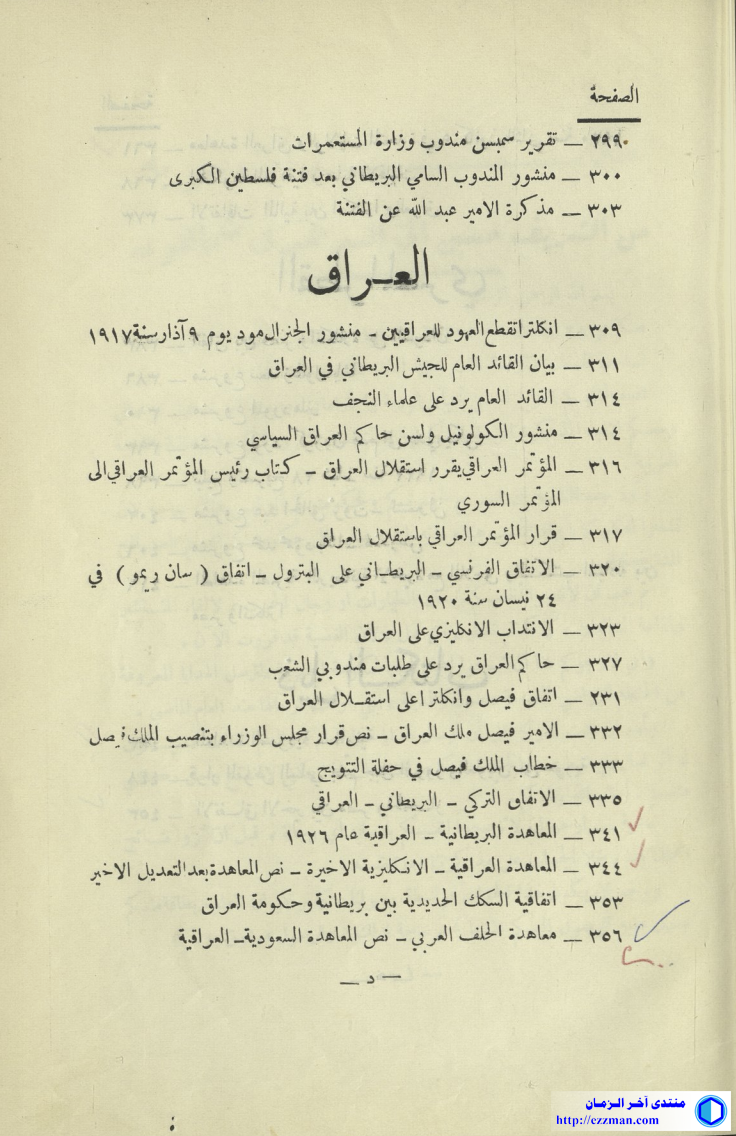 الصفحة
٢٩٩ — تقرير سمبسن مندوب وزارة المستعمرات
٣٠٠ — منشور المندوب السامي البريطاني بعد فتنة فلسطين الكبرى
٣٠٣ — مذكرة الامير عبد الله عن الفتنة
العـراق
٣٠٩ — انكلترا تقطع العهود للعراقيين - منشور الجنرال مود يوم ٩ آذار سنة ١٩١٧
٣١١ — بيان القائد العام للجيش البريطاني في العراق
٣١٤ — القائد العام يرد على علماء النجف
٣١٤ — منشور الكولونيل ولسن حاكم العراق السياسي
٣١٦ — المؤتمر العراقي يقرر استقلال العراق - كتاب رئيس المؤتمر العراقي الى
المؤتمر السوري
٣١٧ — قرار المؤتمر العراقي باستقلال العراق
٣٢٠ — الاتفاق الفرنسي - البريطـاني على البترول - اتفاق ( سان ريمو ) في
٢٤ نيسان سنة ١٩٢٠
٣٢٣ — الانتداب الانكليزي على العراق
٣٢٧ — حاكم العراق يرد على طلبات مندوبي الشعب
٢٣١ — اتفاق فيصل وانكلترا على استقـلال العراق
٣٣٢ — الامير فيصل ملك العراق - نص قرار مجلس الوزراء بتنصيب الملك فيصل
٣٣٣ — خطاب الملك فيصل في حفلة التتويج
٣٣٥ — الاتفاق التركي - البريطاني - العراقي
٣٤١ — المعاهدة البريطانية - العراقية عام ١٩٢٦
٣٤٤ — المعاهدة العراقية - الانكليزية الاخيرة - نص المعاهدة بعد التعديل الاخير
٣٥٣ — اتفاقية السكك الحديدية بين بريطانية وحكومة العراق
٣٥٦ — معاهدة الحلف العربي - نص المعاهدة السعودية - العراقية
— د —
منتدى آخر الـزمـان
http://ezzman.com